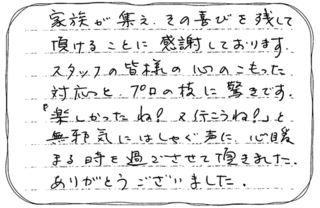 家族が集え、その喜びを残して
頂けることに感謝しております。
スタッフの皆様の心のこもった
対応と、プロの技に驚きです。
『楽しかったね? 又行こうね?』と
無邪気にはしゃぐ声に、心暖
まる時を過ごさせて頂きました。
ありがとうございました。